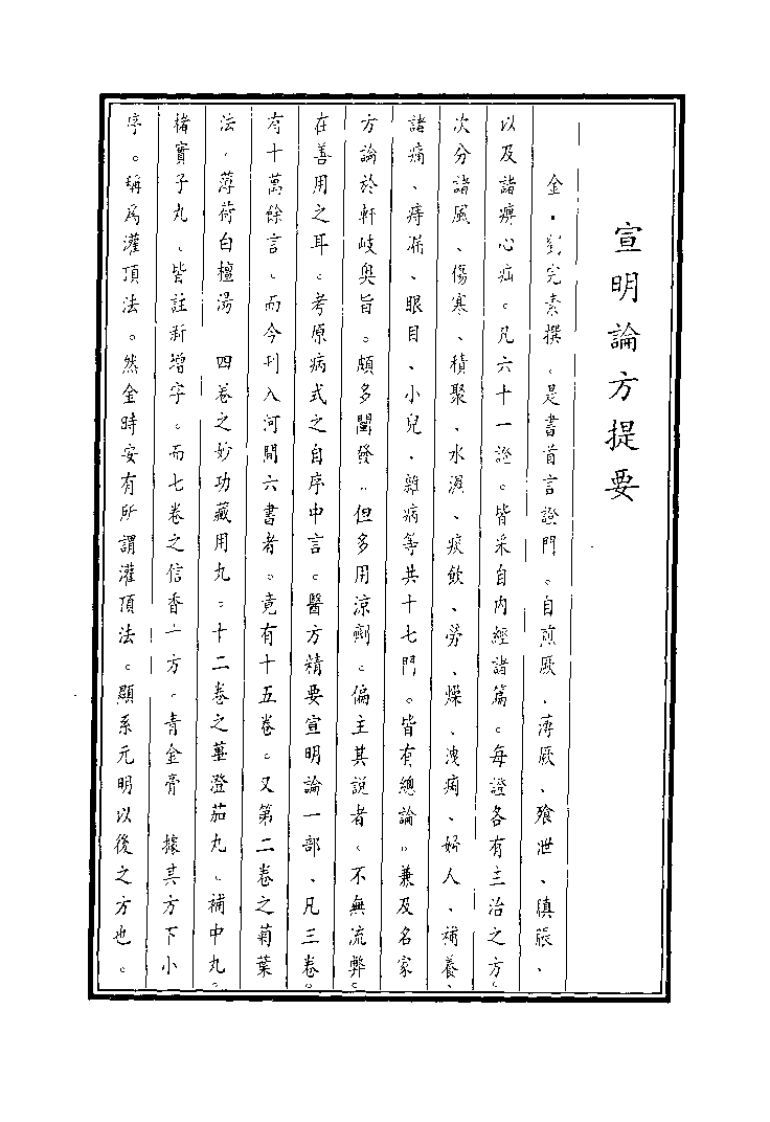 宣明論方提要
金．劉完素撰。是書首言證門。自煎厥、薄厥、飱泄、䐜脹、
以及諸痹心疝。凡六十一證。皆采自內經諸篇。每證各有主治之方。
次分諸風、傷寒、積聚、水濕、痰飲、勞、燥、洩痢、婦人、補養、
諸痛、痔漏、眼目、小兒、雜病等共十七門。皆有總論。兼及名家
方論於軒岐奧旨。頗多闡發。但多用涼劑。偏主其說者。不無流弊。
在善用之耳。考原病式之自序中言。醫方精要宣明論一部、凡三卷。
有十萬餘言。而今刊入河間六書者。竟有十五卷。又第二卷之菊葉
法、薄荷白檀湯　四卷之妙功藏用丸。十二卷之蓽澄茄丸、補中丸。
楮實子丸。皆註新增字。而七卷之信香十方。青金膏　據其方下小
序。稱爲灌頂法。然金時安有所謂灌頂法。顯系元明以後之方也。